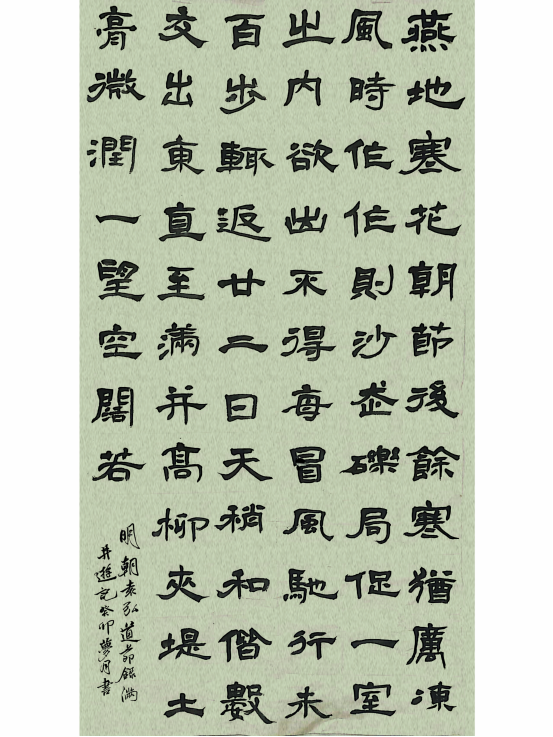 燕地寒花朝節後餘寒猶厲凍
風時作作則沙走礫局促一室
之内欲出不得每冒風馳行未
百步輒返廿二日天稍和偕數
交出東直至滿并高柳夾堤土
膏微潤一望空闊若
明朝袁弘道節錄滿
并遊記癸卯夢月書